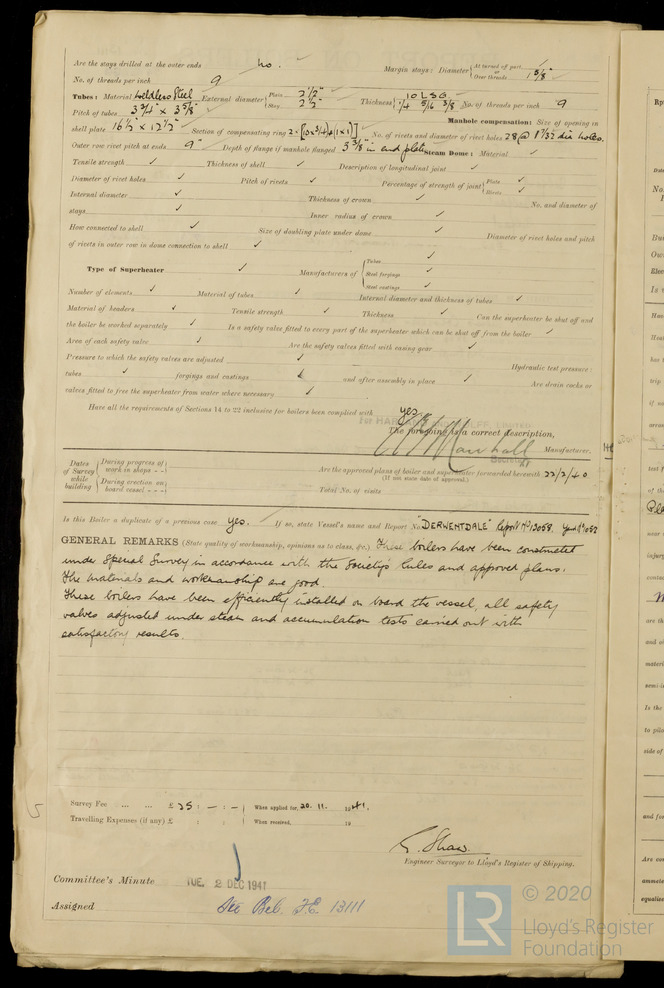 Are the stays drilled at the outer ends no. Margin stays: Diameter { At turned off part, or Over threads 1 5/8"
No. of threads per inch 9
Tubes: Material Weldless Steel External diameter { Plain 2 1/2" Stay 2 1/2" Thickness { 10 LSG 1/4 5/16 3/8 No. of threads per inch 9
Pitch of tubes 3 3/4" x 3 5/8" Manhole compensation: Size of opening in
shell plate 16 1/2" x 12 1/2" Section of compensating ring No. of rivets and diameter of rivet holes 28 @ 1 7/32 dia holes.
Outer row rivet pitch at ends 9" Depth of flange if manhole flanged 3 3/8" in end plate Steam Dome: Material ✓
Tensile strength ✓ Thickness of shell ✓ Description of longitudinal joint ✓
Diameter of rivet holes ✓ Pitch of rivets ✓ Percentage of strength of joint { Plate ✓ Rivets ✓
Internal diameter ✓ Thickness of crown ✓ No. and diameter of
stays ✓ Inner radius of crown ✓
How connected to shell ✓ Size of doubling plate under dome ✓ Diameter of rivet holes and pitch
of rivets in outer row in dome connection to shell ✓
Type of Superheater ✓ Manufacturers of { Tubes ✓ Steel forgings ✓ Steel castings ✓
Number of elements ✓ Material of tubes ✓ Internal diameter and thickness of tubes ✓
Material of headers ✓ Tensile strength ✓ Thickness ✓ Can the superheater be shut off and
the boiler be worked separately ✓ Is a safety valve fitted to every part of the superheater which can be shut off from the boiler ✓
Area of each safety valve ✓ Are the safety valves fitted with easing gear ✓
Pressure to which the safety valves are adjusted ✓ Hydraulic test pressure:
tubes ✓ forgings and castings ✓ and after assembly in place ✓ Are drain cocks or
valves fitted to free the superheater from water where necessary ✓
Have all the requirements of Sections 14 to 22 inclusive for boilers been complied with yes.
The foregoing is a correct description,
Manufacturer.
Secretary
Dates of Survey while building { During progress of work in shops - - During erection on board vessel - - - Are the approved plans of boiler and superheater forwarded herewith 22/2/40
(If not state date of approval.)
Total No. of visits
Is this Boiler a duplicate of a previous case yes. If so, state Vessel's name and Report No. "DERWENTDALE" Report No 13058.
GENERAL REMARKS (State quality of workmanship, opinions as to class, &c.) These boilers have been constructed
under Special Survey in accordance with the Society's Rules and approved plans.
The materials and workmanship are good.
These boilers have been efficiently installed on board the vessel, all safety
valves adjusted under steam and accumulation tests carried out with
satisfactory results.
Survey Fee ... ... £25 : - : - When applied for, 20. 11. 1941.
Travelling Expenses (if any) £ : : When received, 19
Shaw
Engineer Surveyor to Lloyd's Register of Shipping.
Committee's Minute TUE. 2 DEC 1941
Assigned See Bel. F.E. 13111
LR © 2020
Lloyd's Register
Foundation